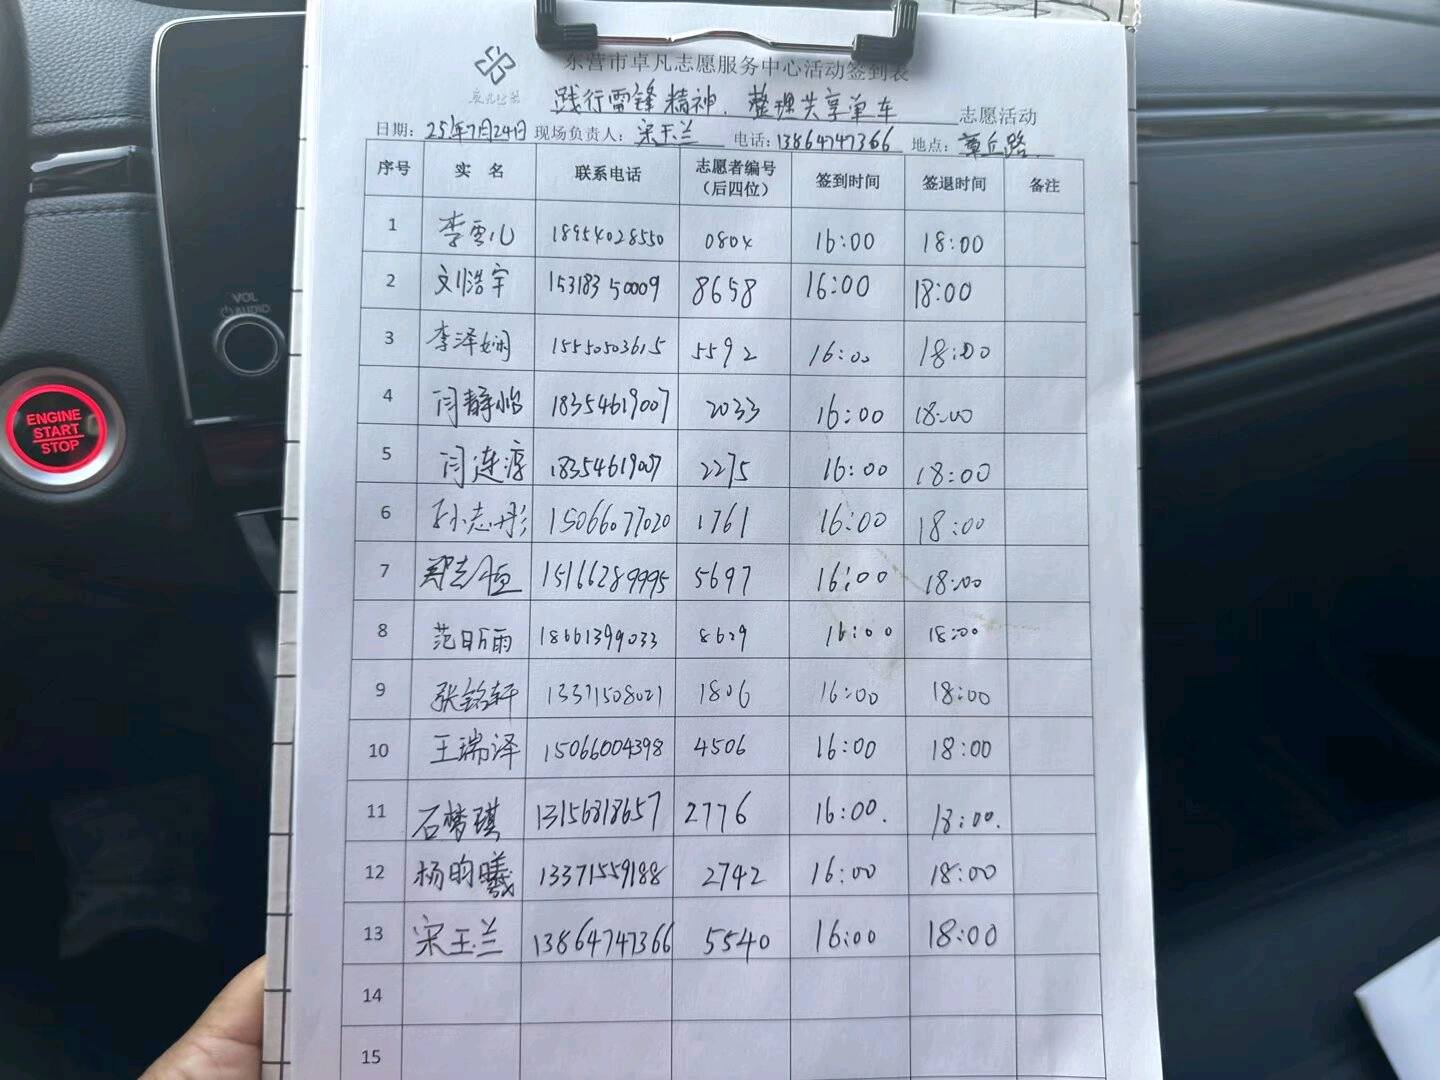 东营市卓凡志愿服务中心活动签到表
践行雷锋精神、整理共享单车 志愿活动
日期：25年7月24日 现场负责人：宋玉兰 电话：13864747366 地点：覃丘路
序号 实 名 联系电话 志愿者编号（后四位） 签到时间 签退时间 备注
1 李雪儿 18954028550 0804 16:00 18:00
2 刘浩宇 15318350009 8658 16:00 18:00
3 李泽娴 15550503615 5592 16:00 18:00
4 闫静怡 18354619007 2033 16:00 18:00
5 闫连淳 18354619007 2275 16:00 18:00
6 孙志彤 15066077020 1761 16:00 18:00
7 15166289995 5697 16:00 18:00
8 范昕雨 18661399033 8629 16:00 18:00
9 张铭轩 13371508021 1806 16:00 18:00
10 王瑞泽 15066004398 4506 16:00 18:00
11 石梦琪 13156818657 2776 16:00. 18:00.
12 杨昀曦 13371559188 2742 16:00 18:00
13 宋玉兰 13864747366 5540 16:00 18:00
14
15
VOL
AUDIO
ENGINE
START
STOP